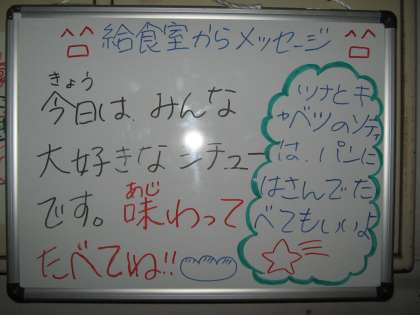 給食室からメッセージ
きょう
今日は、みんな
大好きなシチュー
です。味わって
あじ
たべてね!!
ツナとキ
ャベツのソテー
は、パンに
はさんでた
べてもいいよ